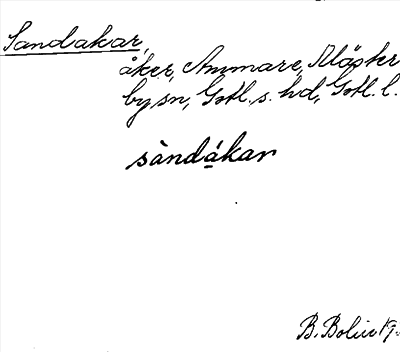 Sandakar,
åker, Ammare,
by sn, Gotl. s. hd, Gotl. l.
sàndákar
B. Bolin 19